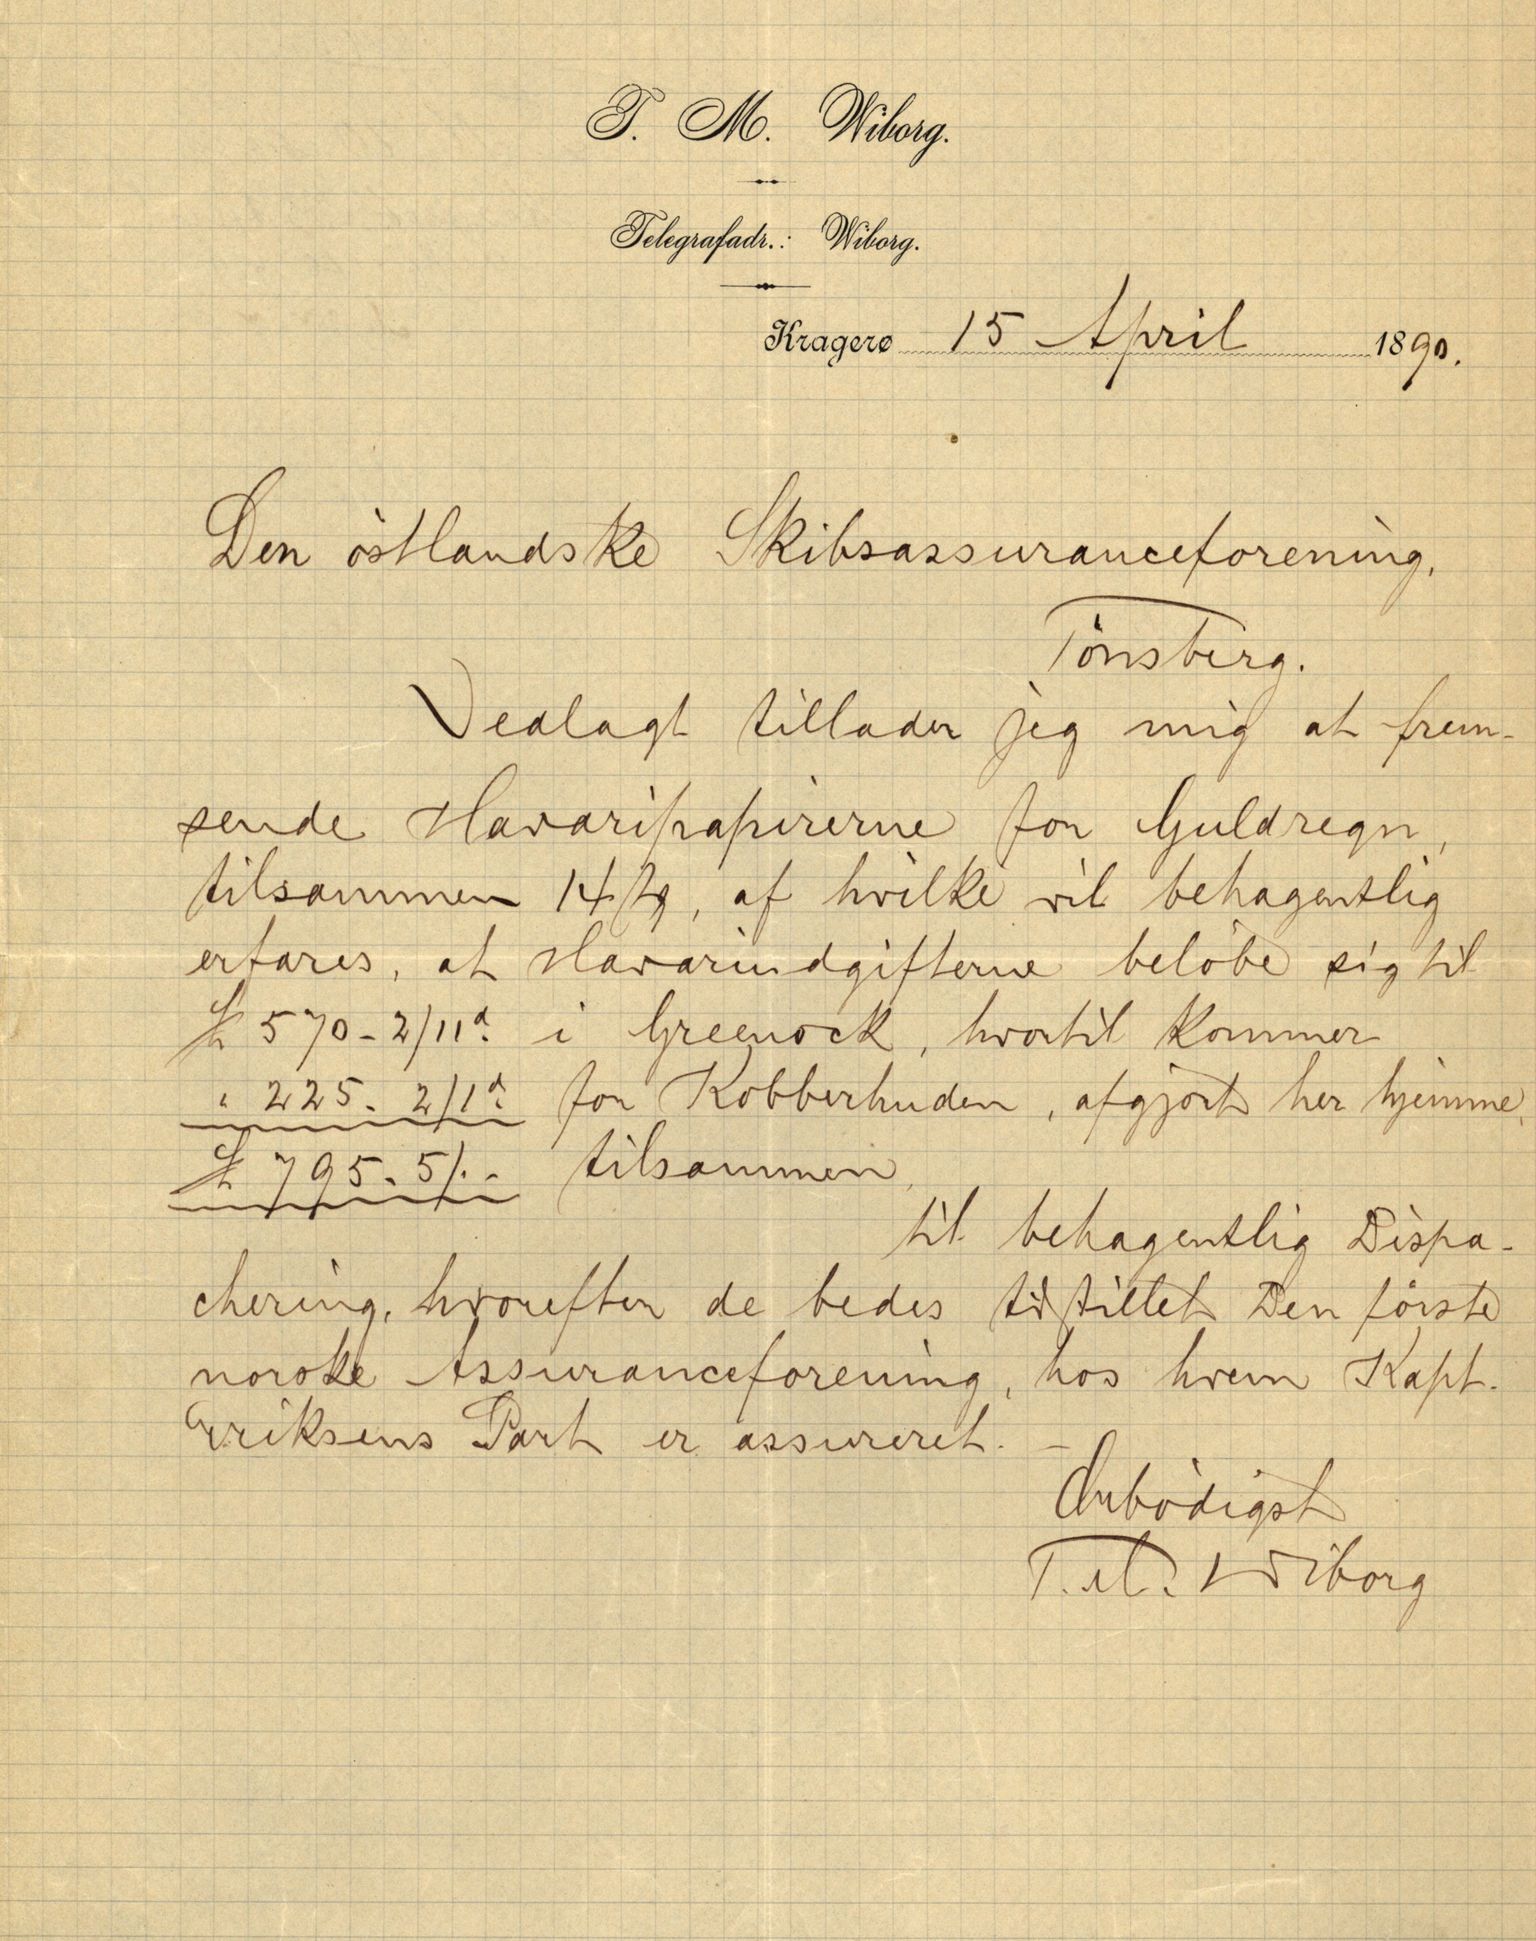 T. M. Wiborg.
Telegrafadr.: Wiborg.
Kragerø 15 April 1890.
Den östlandske Skibsassuranceforening,
Tönsberg.
Vedlagt tillader jeg mig at frem-
sende Havaripapirerne for Guldregn,
tilsammen 14, af hvilke vil behagentlig
erfares, at Havariudgifterne belöbe sig til
£ 570 - 2/11d. i Greenock, hvortil kommer
" 225. 2/1d. for Kobberhuden, afgjort her hjemme,
£ 795. 5/. - tilsammen,
til behagentlig Dispa-
chering, hvorefter de bedes tilstillet Den förste
norske Assuranceforening, hos hvem Kapt.
Eriksens Part er assureret. -
Ærbödigst
T. M. Wiborg